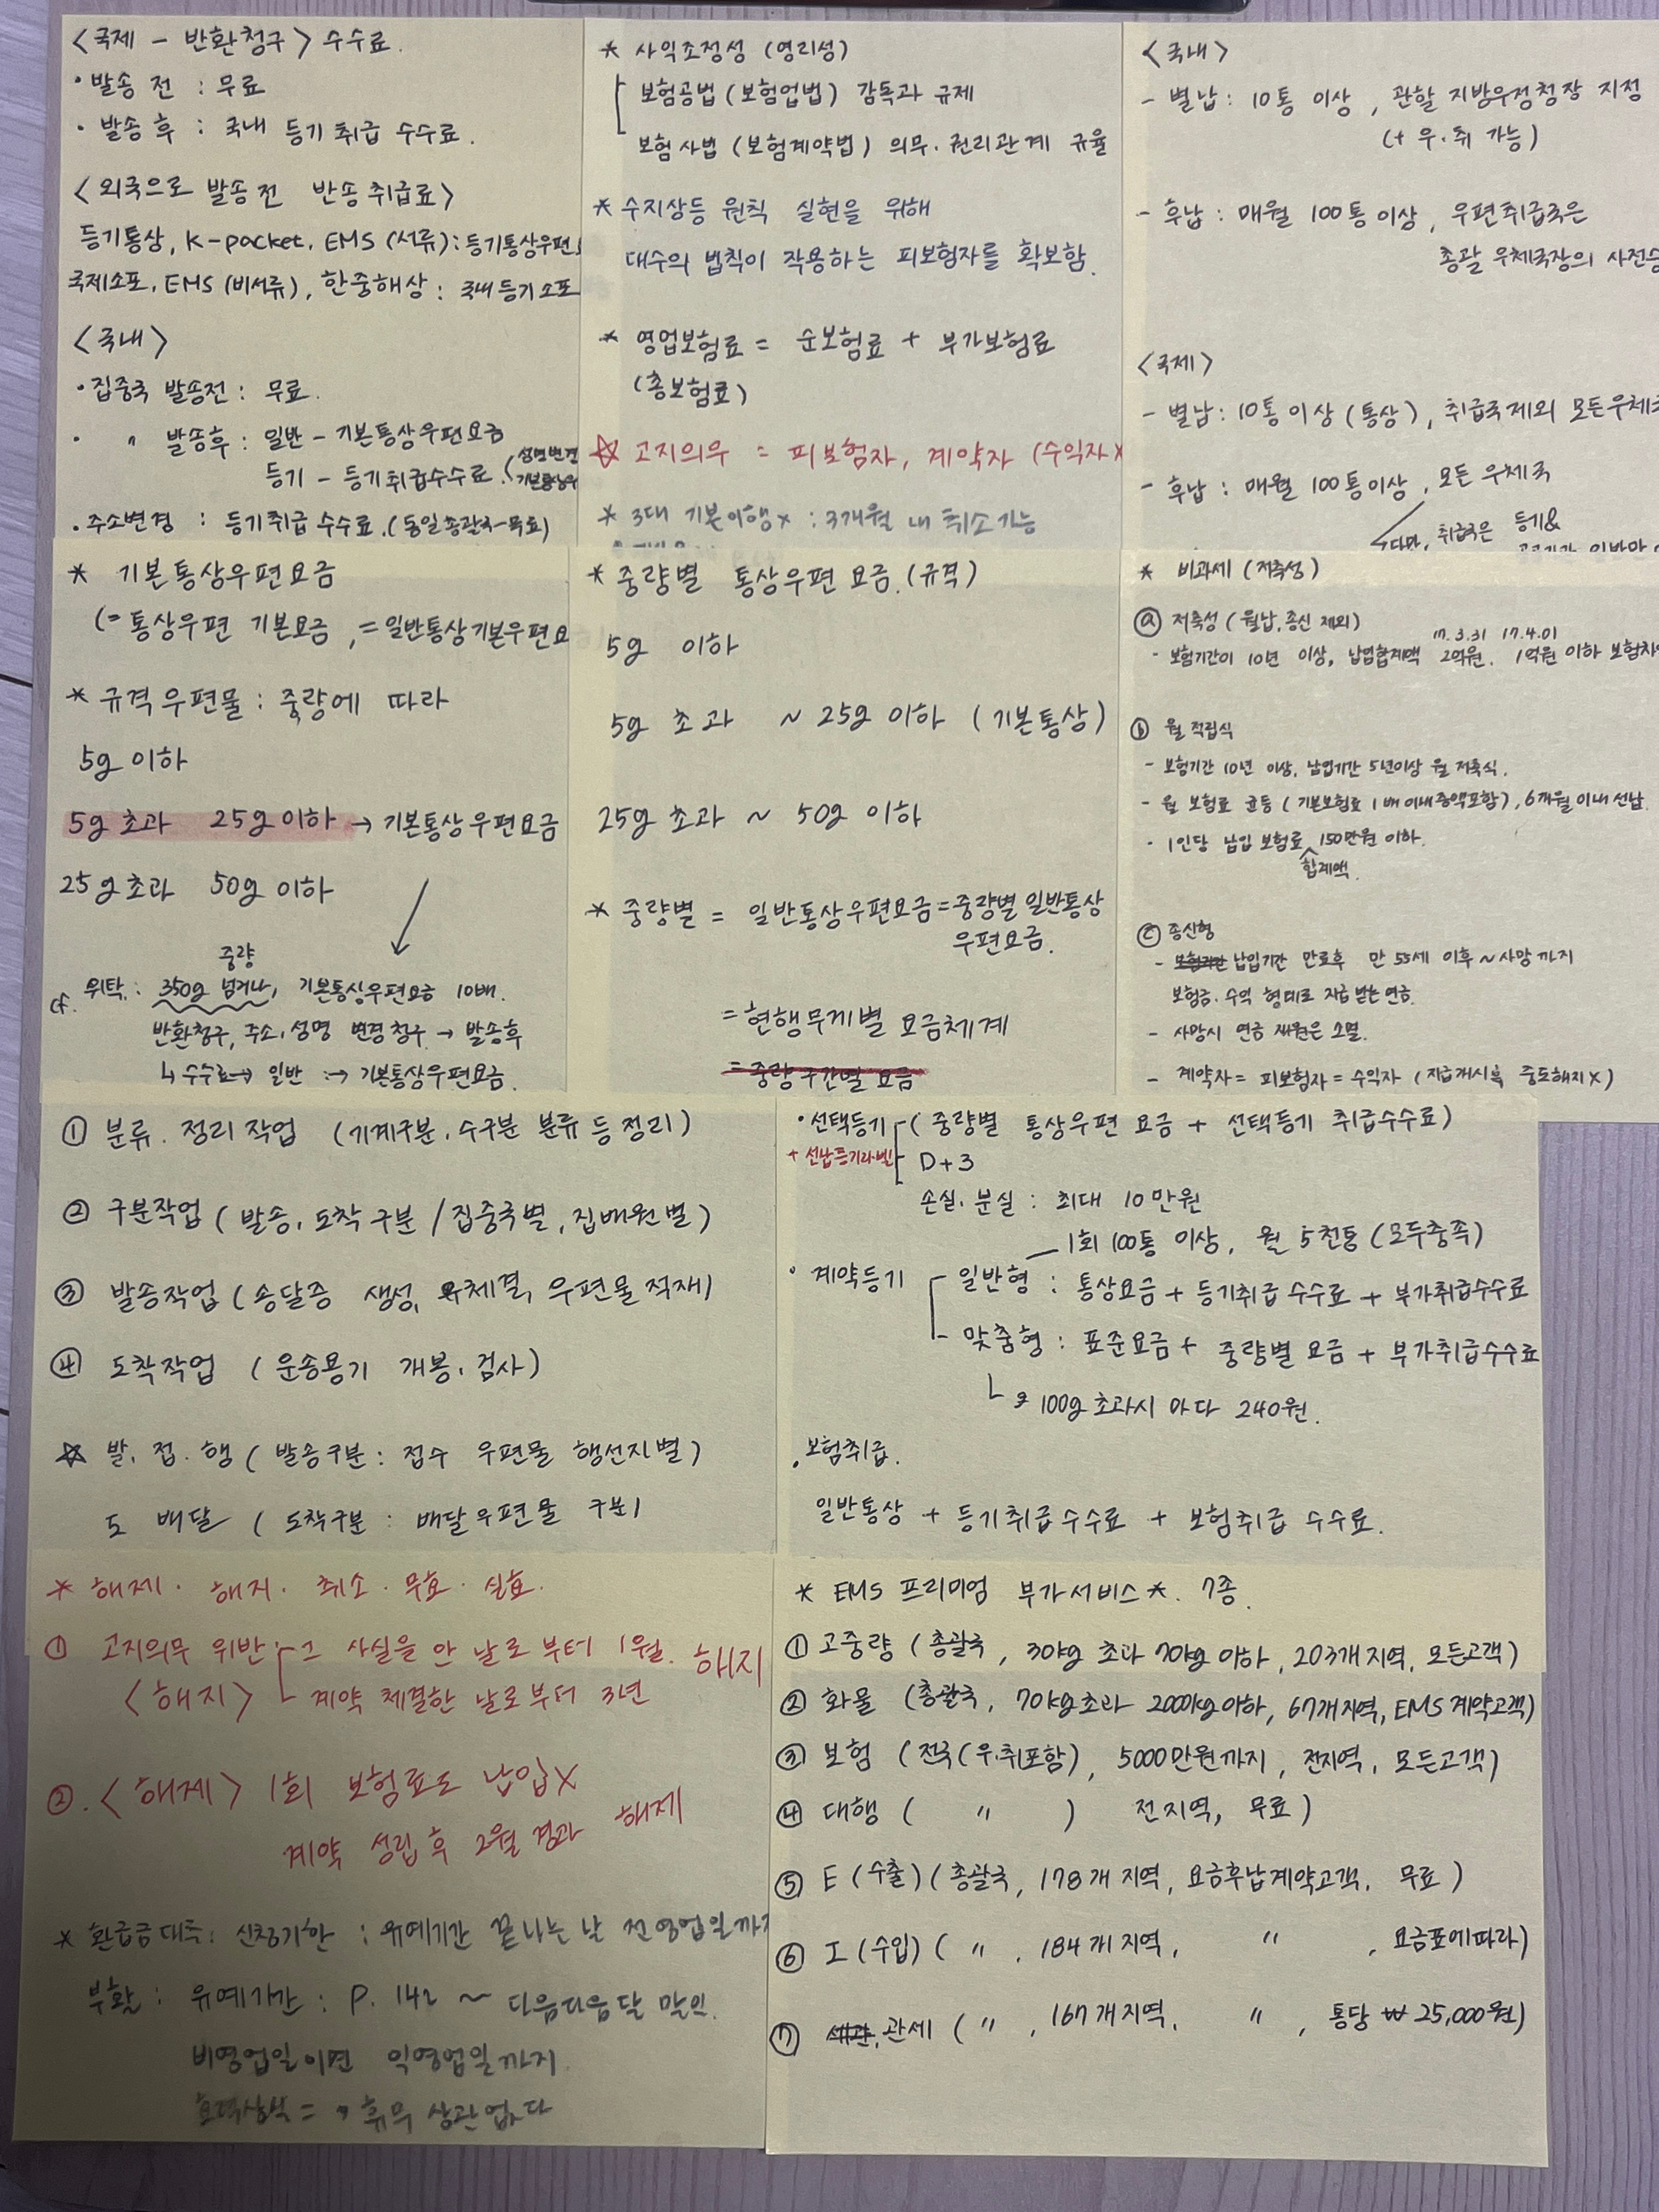 <국제 - 반환청구> 수수료.
· 발송 전 : 무료
· 발송 후 : 국내 등기취급 수수료.
<외국으로 발송 전 반송 취급료>
등기통상, K-packet, EMS (서류) : 등기통상우편
국제소포, EMS (비서류), 한중해상 : 국내등기소포
<국내>
· 집중국 발송전 : 무료.
· 〃 발송후 : 일반 - 기본통상우편요금
등기 - 등기취급수수료. (성명변경
기본통상우
· 주소변경 : 등기취급 수수료. (동일총괄국-무료)
* 사익조정성 (영리성)
보험공법 (보험업법) 감독과 규제
보험사법 (보험계약법) 의무·권리관계 규율
* 수지상등 원칙 실현을 위해
대수의 법칙이 작용하는 피보험자를 확보함.
* 영업보험료 = 순보험료 + 부가보험료
(총보험료)
☆ 고지의무 = 피보험자, 계약자 (수익자X
* 3대 기본이행x : 3개월 내 취소가능
<국내>
- 별납 : 10통 이상, 관할 지방우정청장 지정
(+ 우·취 가능)
- 후납 : 매월 100통 이상, 우편취급국은
총괄 우체국장의 사전승
<국제>
- 별납 : 10통 이상 (통상), 취급국제외 모든우체국
- 후납 : 매월 100통이상, 모든 우체국
다만, 취급국은 등기&
* 기본통상우편요금
(= 통상우편 기본요금, = 일반통상기본우편요
* 규격우편물 : 중량에 따라
5g 이하
5g 초과 25g 이하 → 기본통상우편요금
25g 초과 50g 이하
중량
cf. 위탁 : 350g 넘거나, 기본통상우편요금 10배.
반환청구, 주소, 성명 변경청구 → 발송후
↳ 수수료 → 일반 : → 기본통상우편요금.
* 중량별 통상우편 요금. (규격)
5g 이하
5g 초과 ~ 25g 이하 (기본통상)
25g 초과 ~ 50g 이하
* 중량별 = 일반통상우편요금 = 중량별 일반통상
우편요금.
= 현행무게별 요금체계
= 중량 구간별 요금
* 비과세 (저축성)
ⓐ 저축성 (월납, 종신 제외)
17.3.31 17.4.01
- 보험기간이 10년 이상, 납입합계액 2억원. 1억원 이하 보험차
ⓑ 월 적립식
- 보험기간 10년 이상, 납입기간 5년이상 월 저축식.
- 월 보험료 균등 (기본보험료 1배 이내 증액포함), 6개월 이내 선납
- 1인당 납입 보험료 150만원 이하.
합계액
ⓒ 종신형
- 보험기간 납입기간 만료후 만 55세 이후 ~ 사망까지
보험금·수익 형태로 지급 받는 연금.
- 사망시 연금 재원은 소멸.
- 계약자 = 피보험자 = 수익자 (지급개시후 중도해지 X)
① 분류·정리작업 (기계구분·수구분 분류 등 정리)
② 구분작업 (발송, 도착 구분 / 집중국별, 집배원별)
③ 발송작업 (송달증 생성, 체결, 우편물적재)
④ 도착작업 (운송용기 개봉, 검사)
☆ 발, 접, 행 (발송구분 : 접수 우편물 행선지별)
도 배달 (도착구분 : 배달우편물 구분)
· 선택등기 (중량별 통상우편 요금 + 선택등기 취급수수료)
+ 선납등기라벨 D+3
손실, 분실 : 최대 10만원
1회 100통 이상, 월 5천통 (모두충족)
· 계약등기 일반형 : 통상요금 + 등기취급 수수료 + 부가취급수수료
맞춤형 : 표준요금 + 중량별 요금 + 부가취급수수료
└ 100g 초과시 마다 240원.
· 보험취급.
일반통상 + 등기취급수수료 + 보험취급 수수료.
* 해제 · 해지 · 취소 · 무효 · 실효.
① 고지의무 위반 : 그 사실을 안 날로 부터 1월. 해지
<해지> 계약 체결한 날로부터 3년
②. <해제> 1회 보험료도 납입X
계약 성립 후 2월 경과 해제
* 환급금대출 신청기한 : 유예기간 끝나는 날 전 영업일까지
부활 : 유예기간 : P. 142 ~ 다음다음달 말일.
비영업일이면 익영업일까지.
효력상실 = 휴무 상관없다
* EMS 프리미엄 부가서비스 *. 7종.
① 고중량 (총괄국, 30kg 초과 70kg 이하, 203개 지역, 모든고객)
② 화물 (총괄국, 70kg초과 2000kg이하, 67개지역, EMS 계약고객)
③ 보험 (전국 (우·취포함), 5000만원까지, 전지역, 모든고객)
④ 대행 ( 〃 ) 전지역, 무료)
⑤ E (수출) (총괄국, 178개 지역, 요금후납계약고객, 무료)
⑥ I (수입) ( 〃, 184개 지역, 〃, 요금표에따라)
⑦ 세관, 관세 ( 〃, 167개 지역, 〃, 통당 ₩25,000원)